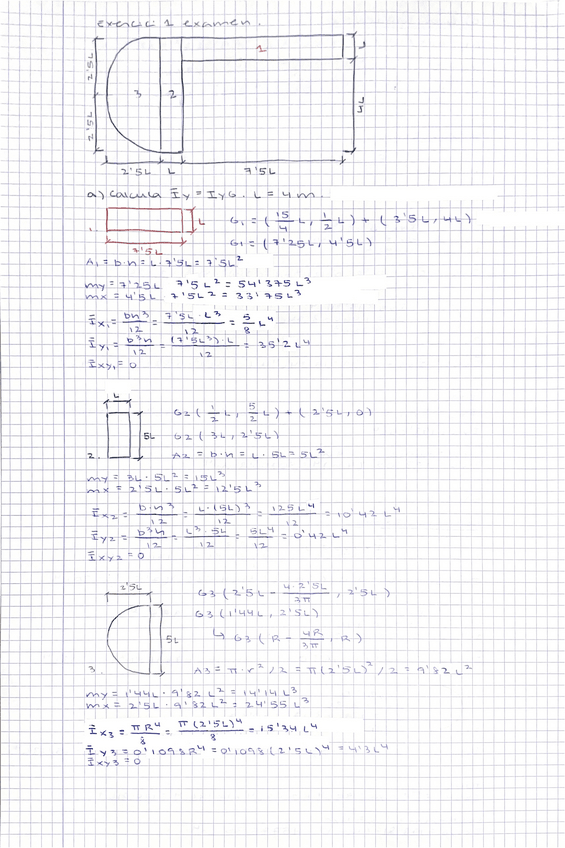 exercici 1 examen.
1
L
2'5L
3
2
2'5L
2'5L
L
7'5L
a) Calcula Īy = IyG. L = 4m.
L
G1 = (15/4 L, 1/2 L) + (3'5L, 4L)
1.
7'5L
G1 = (7'25L, 4'5L)
A1 = b·h = L·7'5L = 7'5L²
my = 7'25L 7'5L² = 54'375L³
mx = 4'5L 7'5L² = 33'75L³
Īx1 = bh³/12 = 7'5L·L³/12 = 5/8 L⁴
Īy1 = b³h/12 = (7'5L³)·L/12 = 35'2L⁴
Īxy1 = 0
L
G2 (1/2 L, 5/2 L) + (2'5L, 0)
5L
G2 (3L, 2'5L)
2.
A2 = b·h = L·5L = 5L²
my = 3L·5L² = 15L³
mx = 2'5L·5L² = 12'5L³
Īx2 = b·h³/12 = L·(5L)³/12 = 125L⁴/12 = 10'42L⁴
Īy2 = b³h/12 = L³·5L/12 = 5L⁴/12 = 0'42L⁴
Īxy2 = 0
2'5L
G3 (2'5L - 4·2'5L/3π, 2'5L)
G3 (1'44L, 2'5L)
5L
↳ G3 (R - 4R/3π, R)
3.
A3 = π·r²/2 = π(2'5L)²/2 = 9'82L²
my = 1'44L·9'82L² = 14'14L³
mx = 2'5L·9'82L² = 24'55L³
Īx3 = πR⁴/8 = π(2'5L)⁴/8 = 15'34L⁴
Īy3 = 0'1098R⁴ = 0'1098(2'5L)⁴ = 4'3L⁴
Īxy3 = 0